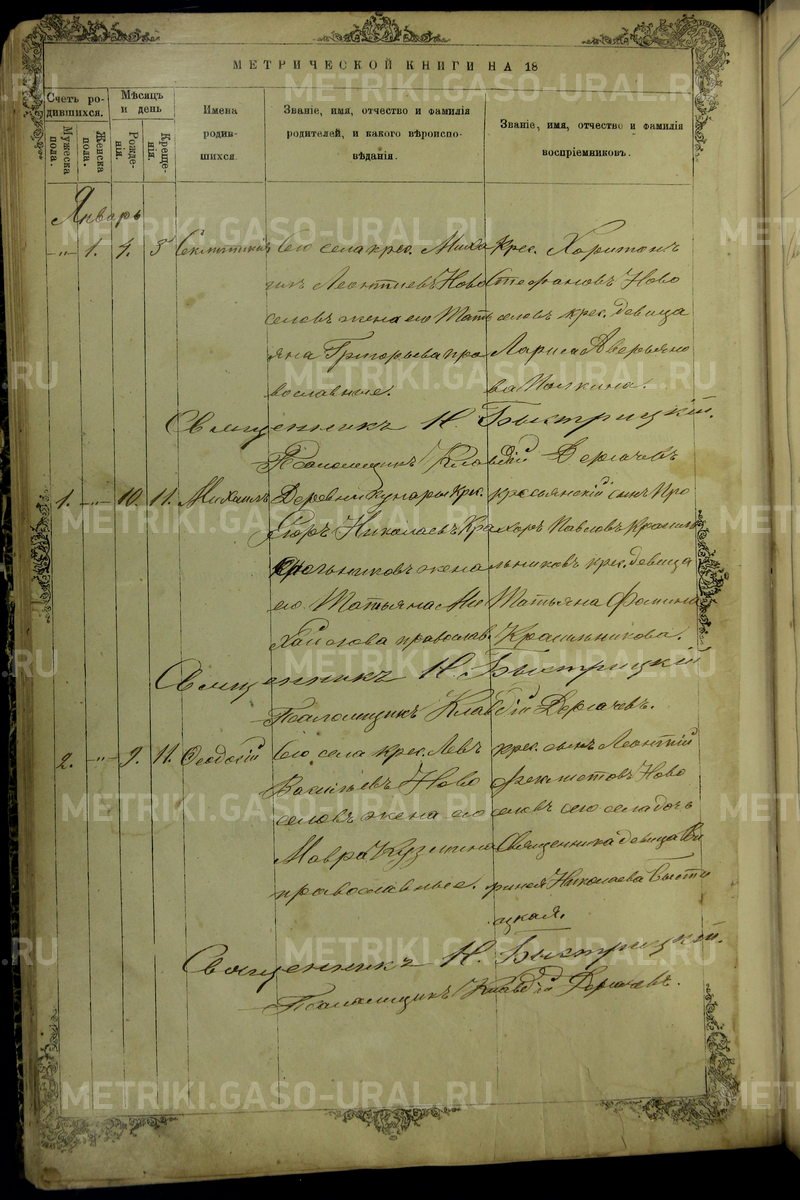 МЕТРИЧЕСКОЙ КНИГИ НА 18
Счетъ ро-
дившихся.
Мѣсяцъ
и день
Мужеска
пола.
Женска
пола.
Рожде-
нія.
Креще-
нія.
Имена
родив-
шихся.
Званіе, имя, отчество и фамилія
родителей, и какого вѣроиспо-
вѣданія.
Званіе, имя, отчество и фамилія
воспріемниковъ.
Январь
-„- 1. 4. 5
Сего села крес. Миха
илъ Леонтіевъ Ново
селовъ жена его Тать
яна Григорьева пра
вославные.
Крес. Харитонъ
Стефановъ Ново
селовъ крес. девица
Лариса Аверьяно
ва
Священникъ Н. Быстрицкій.
Псаломщикъ Клавдій Дергачевъ
1. -„- 10. 11. Михаилъ
Деревни Кунары Крес.
Егоръ Николаевъ Кра
сильниковъ жена
его Татьяна Ми
хайлова православ.
крестьянскій сынъ Про
хоръ Павловъ Красил
ьниковъ крес. девица
Татьяна Фомина
Красильникова.
Священникъ Н. Быстрицкій
Псаломщикъ Клавдій Дергачевъ.
2. -„- 9. 11. Феодосій
Сего села крес. Левъ
Васильевъ Ново
селовъ жена его
Мавра Кузмина
православные.
крес. сынъ Леонтій
Ново
селовъ сего села дочь
Священника девица Ви
ринея Николаева Быстри
цкая.
Священникъ Н. Быстрицкій.
Псаломщикъ Клавдій Дергачевъ.
METRIKI.GASO-URAL.RU